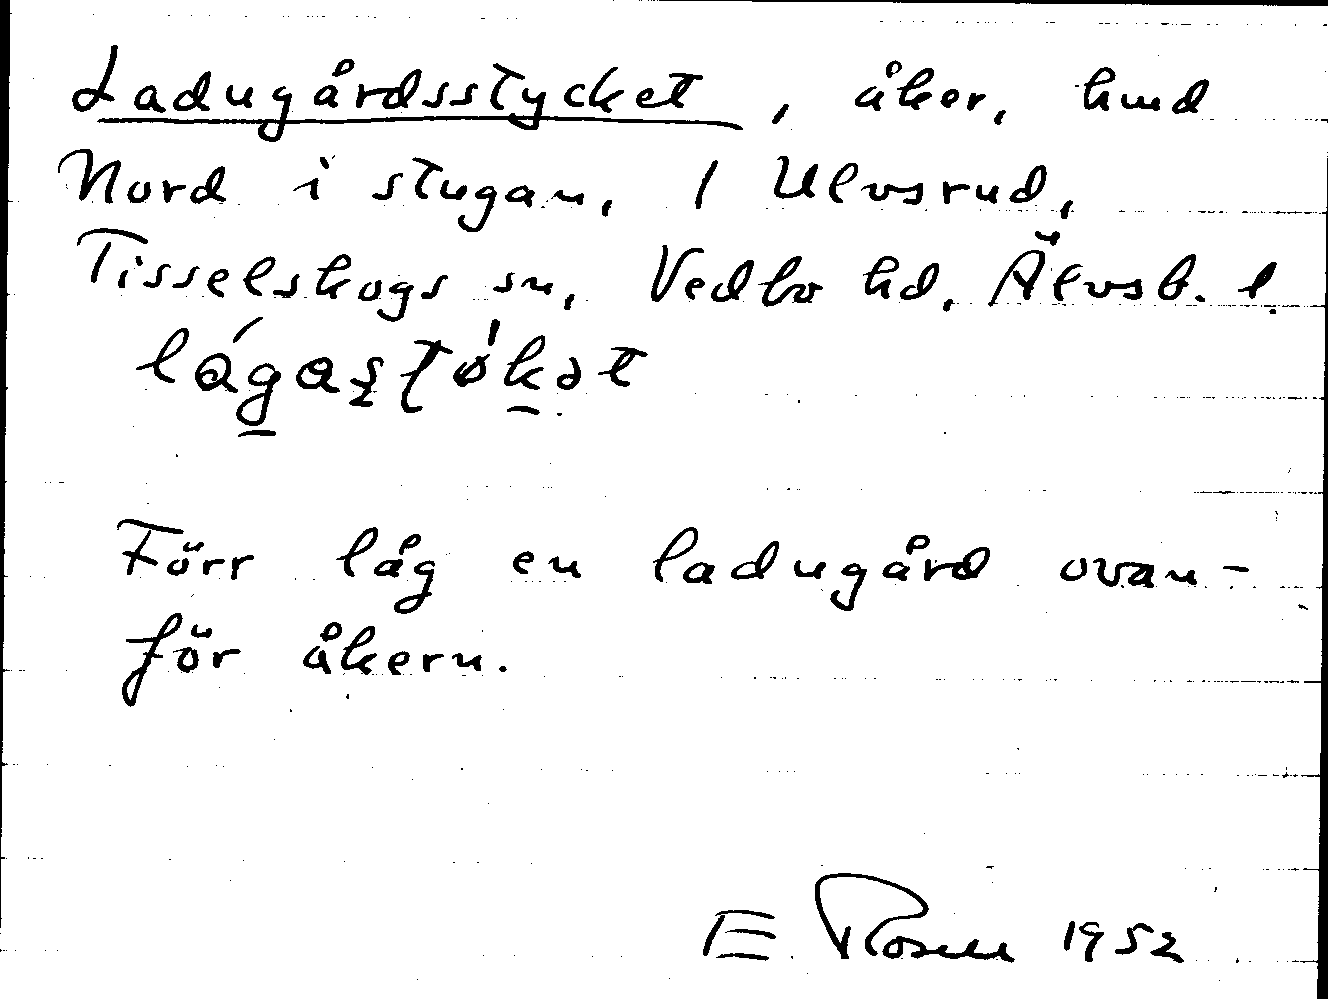 Ladugårdsstycket, åker, hmd
Nord i stugan, 1 Ulvsrud,
Tisselskogs sn, Vedbo hd, Älvsb. l.
Förr låg en ladugård ovan-
för åkern.
E Rosell 1952